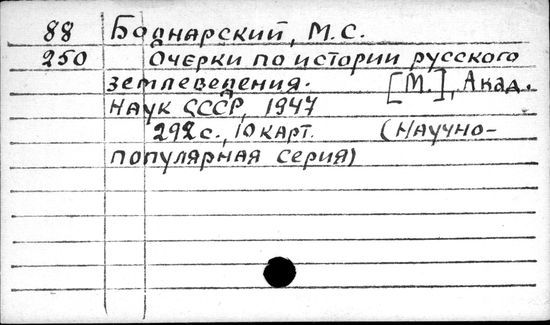 88 Боднарский, М.С.
250 Очерки по истории русского
землеведения. [М.], Акад.
наук СССР, 1947
292 с., 10 карт. (Научно-
популярная серия)